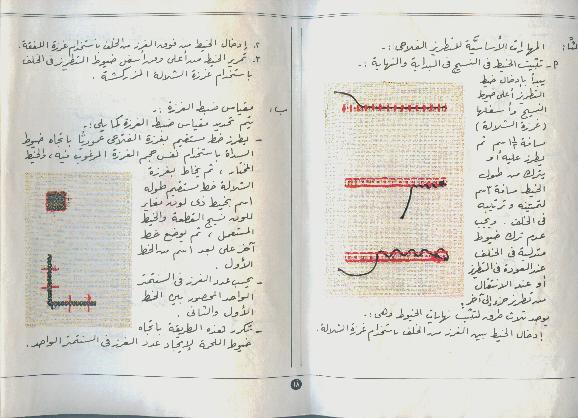 ثالثًا: المهارات الأساسية للتطريز الفلاحي :-
٢- تثبيت الخيط في النسيج في البداية والنهاية :-
يبدأ بإدخال خيط
التطريز أعلى خيوط
النسيج وأسفلها
(غرزة الشلالة)
مسافة ١½ سم ثم
يطرز عليه أو
يترك من طول
الخيط مسافة ٣ سم
لتثبيته وترتيبه
في الخلف. ويجب
عدم ترك خيوط
متدلية في الخلف
عند العودة في التطريز
أو عند الانتقال
من تطريز جزء إلى آخر.
يوجد ثلاث طرق لتثبيت نهايات الخيوط وهي :-
إدخال الخيط بين الغرز من الخلف باستخدام غرزة الشلالة.
٢. إدخال الخيط من فوق الغرز من الخلف باستخدام غرزة اللفقة.
٣. تمرير الخيط من أعلى ومن أسفل خيوط التطريز في الخلف
باستخدام غرزة الشلالة المزركشة.
ب: مقياس ضبط الغرزة :-
يتم تحديد مقياس ضبط الغرزة كما يلي :-
- يطرز خط مستقيم بغرزة الفلاحي عموديًا باتجاه خيوط
السداة باستخدام نفس حجم الغرزة المرغوب فيه، والخيط
المختار، ثم يحاط بغرزة
الشلالة خط مستقيم طوله
١ سم بخيط ذي لون مغاير
للون نسيج القطعة والخيط
المستعمل، ثم يوضع خط
آخر على بعد ١ سم من الخط
الأول.
- يحسب عدد الغرز في السنتمتر
الواحد المحصور بين الخط
الأول والثاني.
- تتكرر هذه الطريقة باتجاه
خيوط اللحمة لإيجاد عدد الغرز في السنتمتر الواحد.
١٨